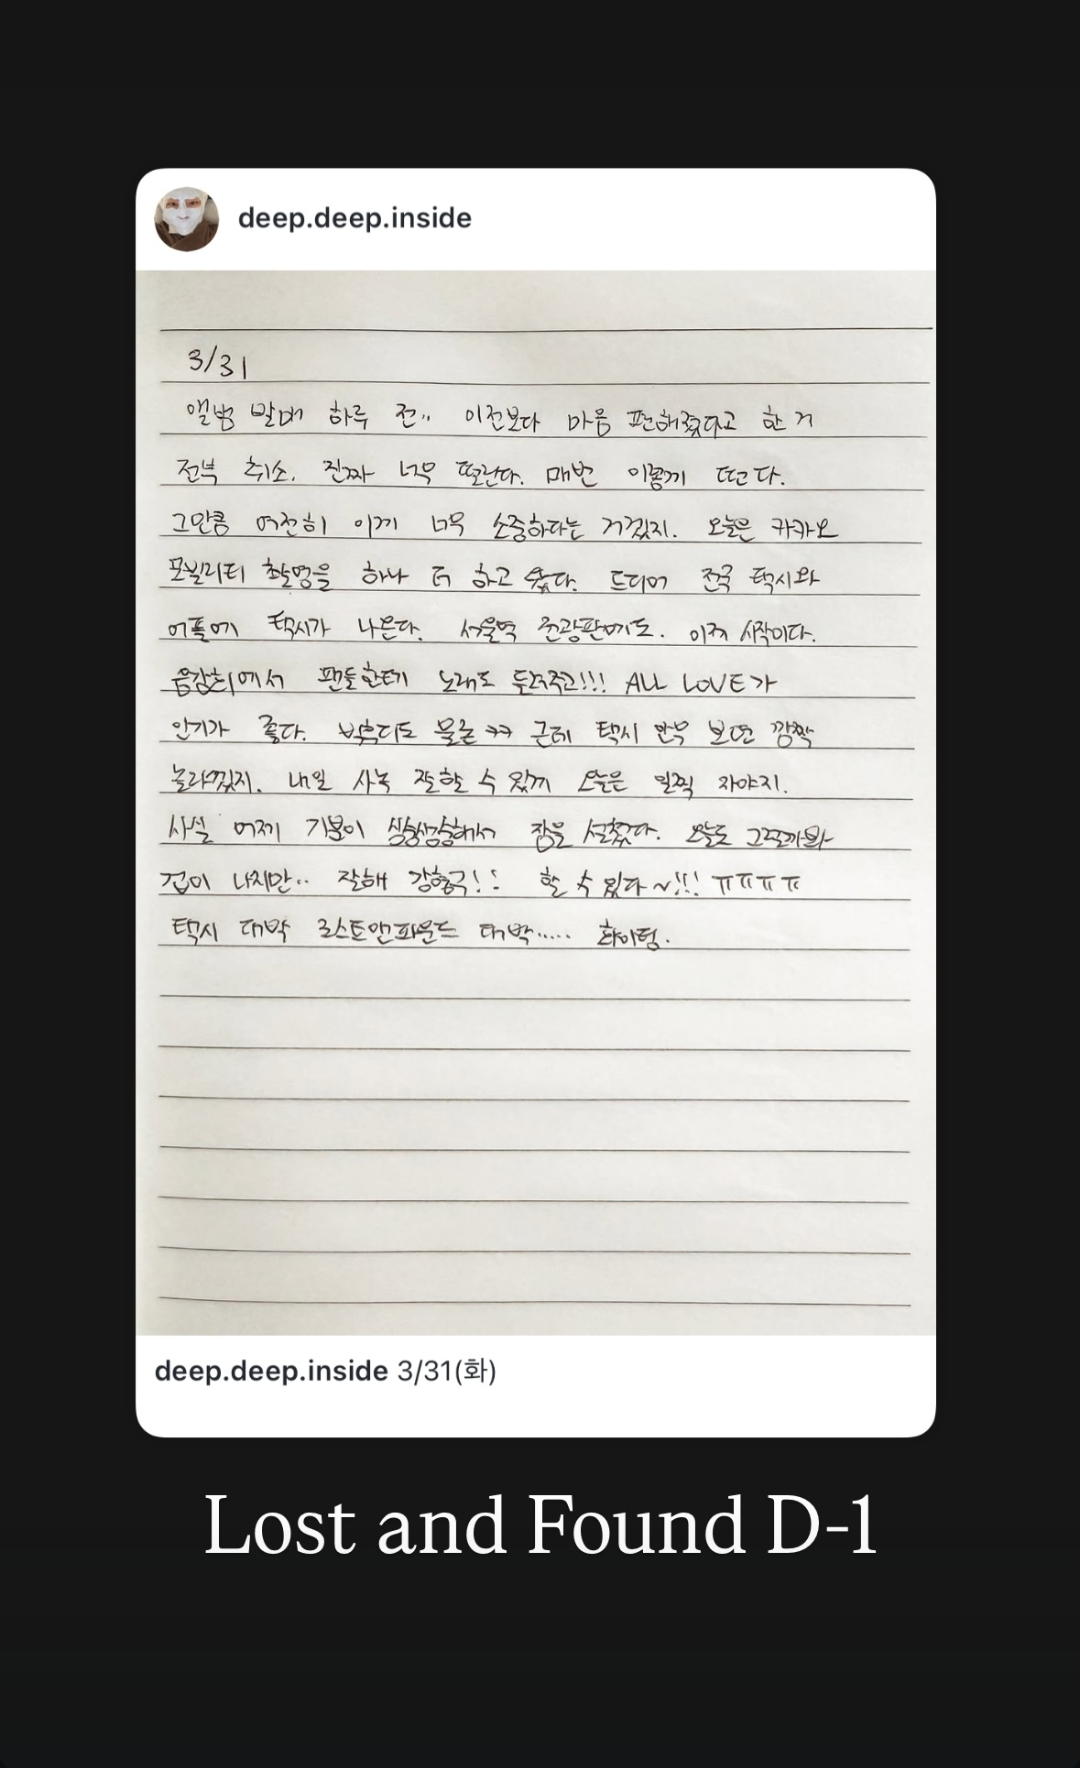 deep.deep.inside
3/31
앨범 발매 하루 전.. 이전보다 마음 편해졌다고 한 거
전부 취소. 진짜 너무 떨린다. 매번 이렇게 떤다.
그만큼 여전히 이게 너무 소중하다는 거겠지. 오늘은 카카오
모빌리티 촬영을 하나 더 하고 왔다. 드디어 전국 택시와
어플에 택시가 나온다. 서울역 전광판에도. 이제 시작이다.
음감회에서 팬들한테 노래도 들려주고!!! ALL LOVE가
인기가 좋다. 벅후디도 물론 ㅋㅋ 근데 택시 안무 보면 깜짝
놀라겠지. 내일 사녹 잘할 수 있게 오늘은 일찍 자야지.
사실 어제 기분이 싱숭생숭해서 잠을 설쳤다. 오늘도 그럴까봐
겁이 나지만.. 잘해 강형구!! 할 수 있다~!!! ㅠㅠㅠㅠ
택시 대박 로스트앤파운드 대박..... 화이팅.
deep.deep.inside 3/31(화)
Lost and Found D-1